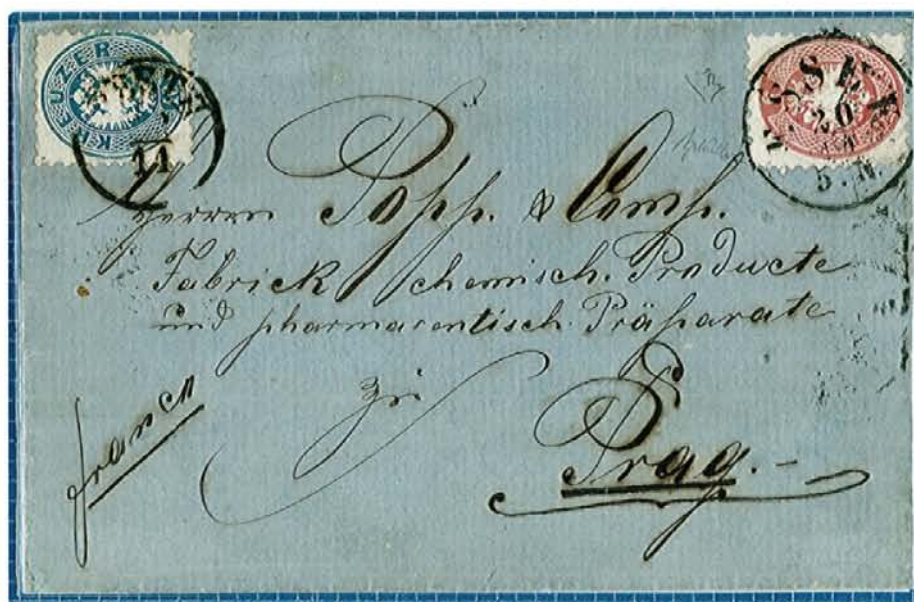 KREUZER
11
20
5. N.
Herrrn Popp. & Comp.
Fabrick chemisch. Producte
und pharmaceutisch Präparate
zu
Prag.-
franco